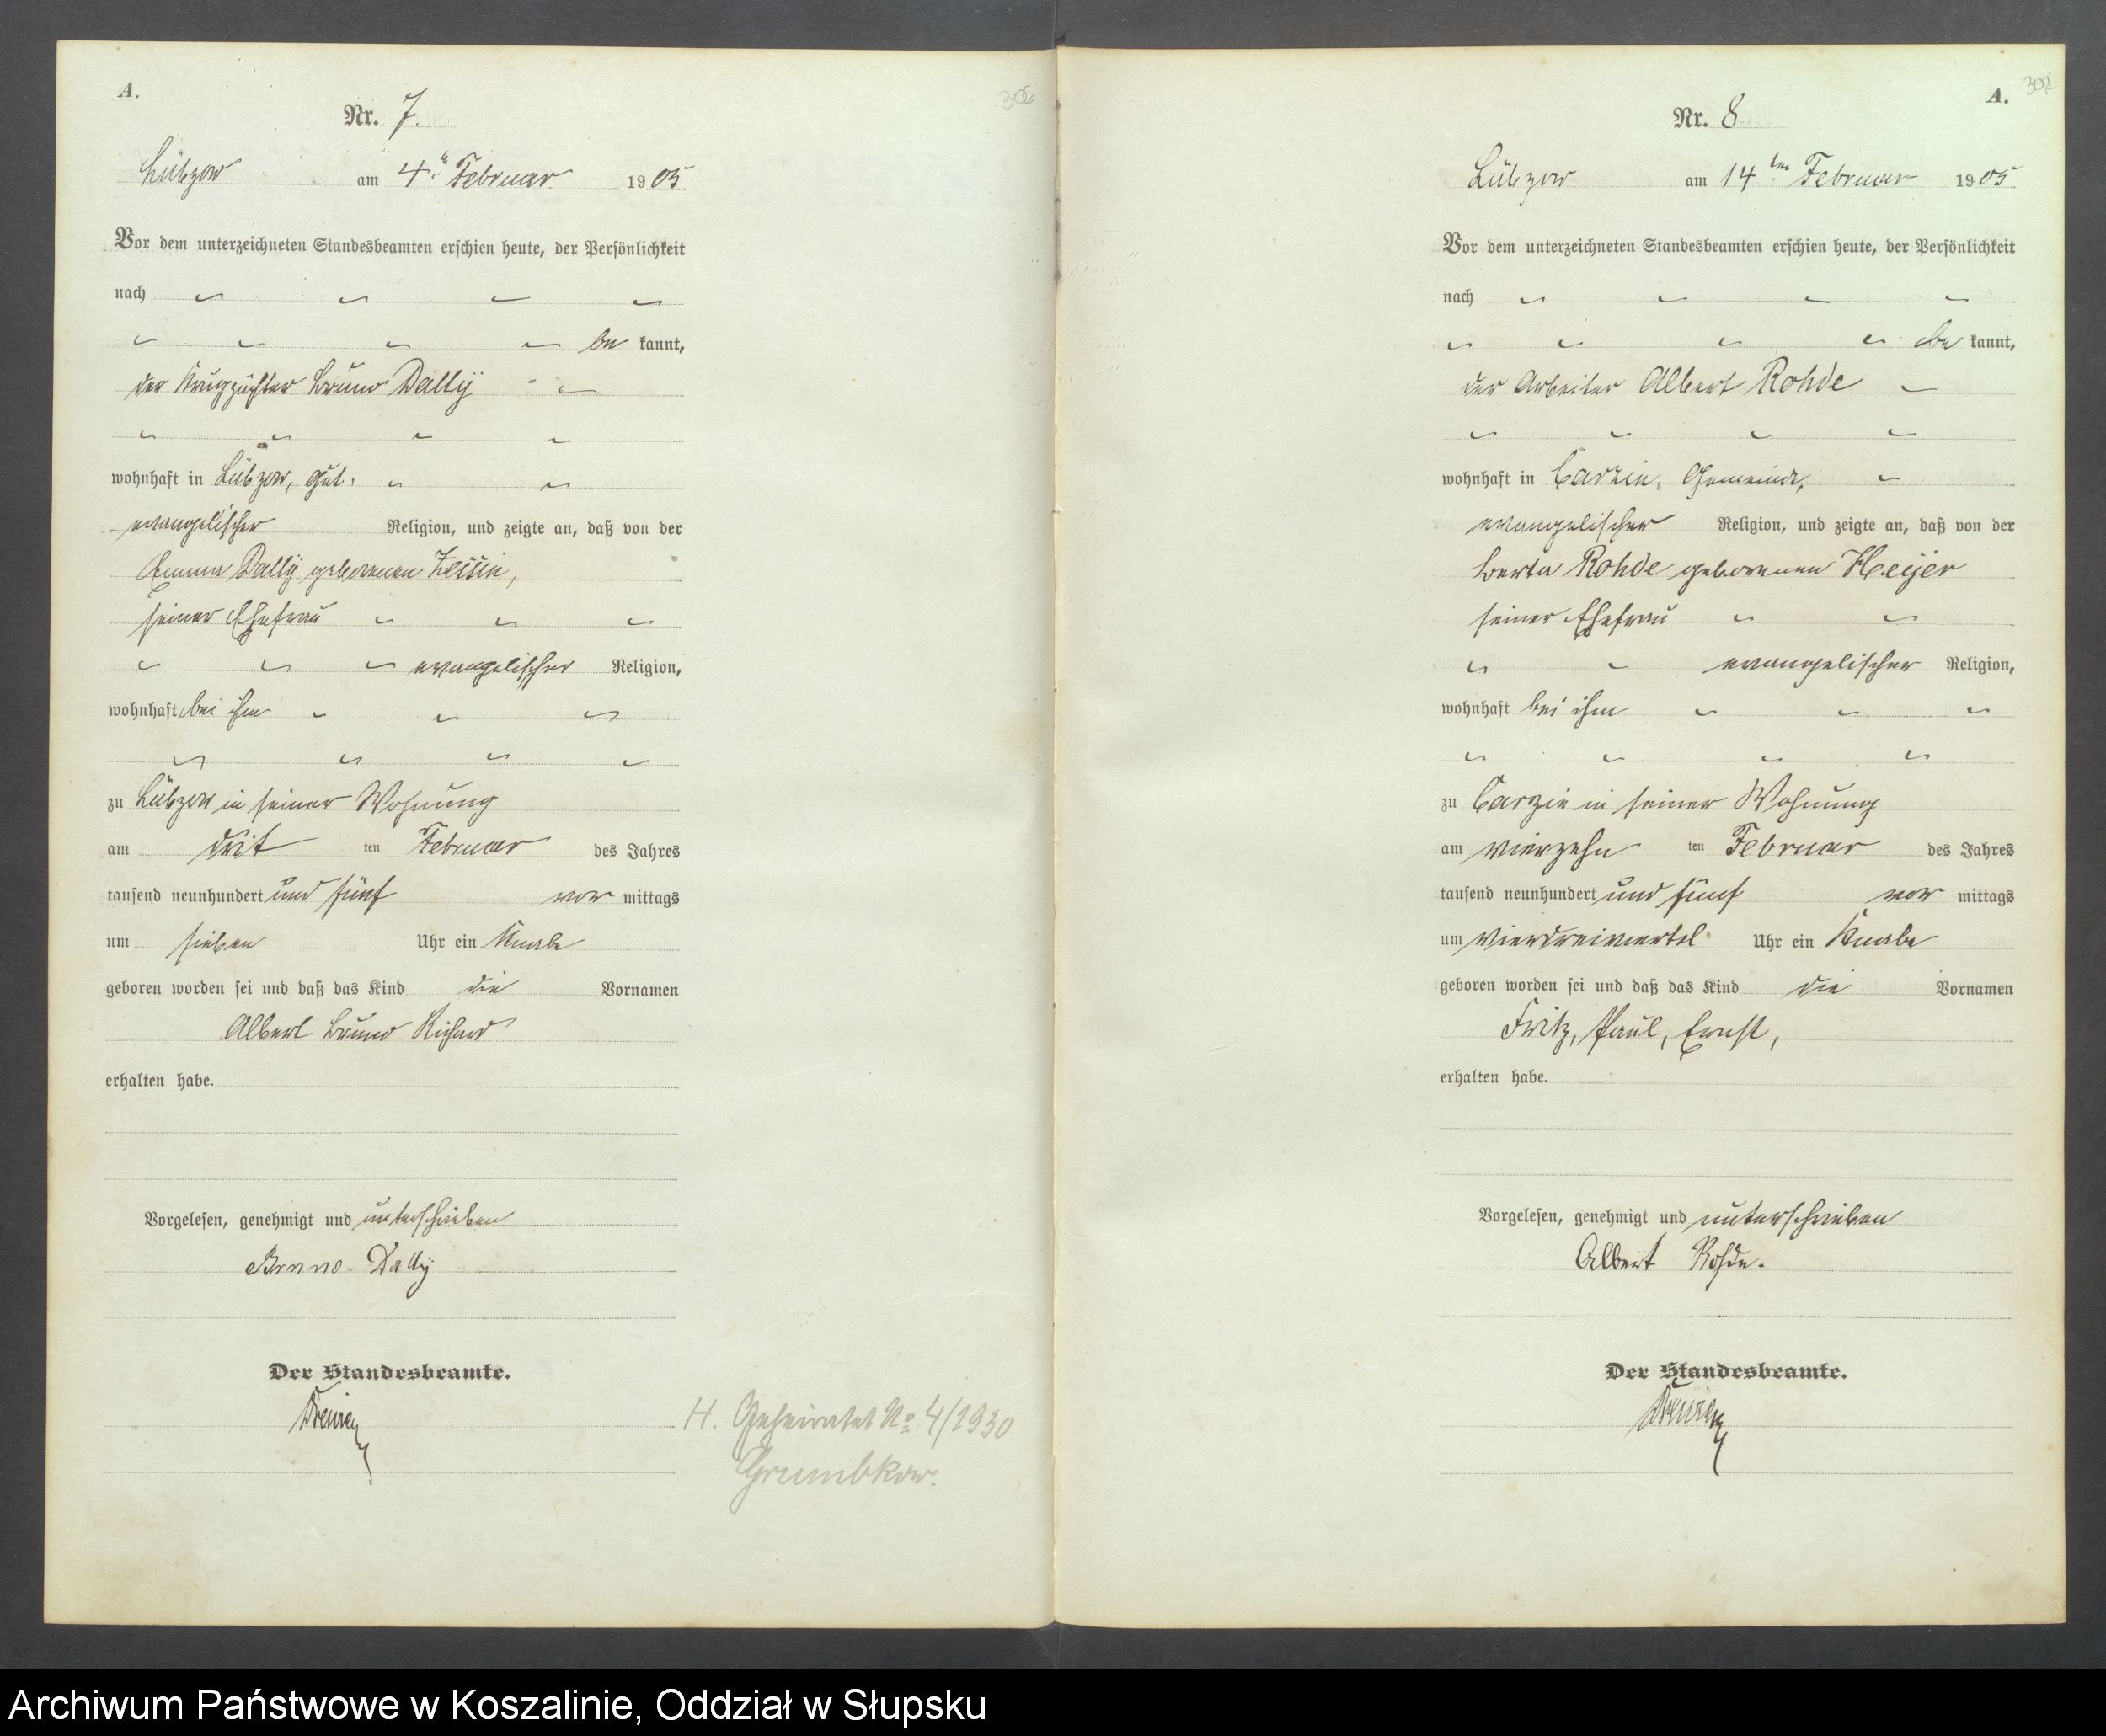 A.
306
Nr. 7.
Lübzow am 4ten Februar 1905
Vor dem unterzeichneten Standesbeamten erschien heute, der Persönlichkeit
nach
be kannt,
der Krugpächter Bruno Dally
wohnhaft in Lübzow, Gut,
evangelischer Religion, und zeigte an, daß von der
Emma Dally geborenen
seiner Ehefrau
evangelischer Religion,
wohnhaft bei ihm
zu Lübzow in seiner Wohnung
am drit ten Februar des Jahres
tausend neunhundert und fünf vor mittags
um sieben Uhr ein Knabe
geboren worden sei und daß das Kind die Vornamen
Albert Bruno Richard
erhalten habe.
Vorgelesen, genehmigt und unterschrieben
Bruno Dally
Der Standesbeamte.
H. Geheiratet No 4/1930
Grumbkow.
A.
307
Nr. 8
Lübzow am 14ten Februar 1905.
Vor dem unterzeichneten Standesbeamten erschien heute, der Persönlichkeit
nach
be kannt,
der Arbeiter Albert Rohde
wohnhaft in Carzin, Gemeinde,
evangelischer Religion, und zeigte an, daß von der
Berta Rohde geborenen Heijer
seiner Ehefrau
evangelischer Religion,
wohnhaft bei ihm
zu Carzin in seiner Wohnung
am vierzehn ten Februar des Jahres
tausend neunhundert und fünf vor mittags
um vierdreiviertel Uhr ein Knabe
geboren worden sei und daß das Kind die Vornamen
Fritz, Paul, Ernst,
erhalten habe.
Vorgelesen, genehmigt und unterschrieben
Albert Rohde.
Der Standesbeamte.
Archiwum Państwowe w Koszalinie, Oddział w Słupsku